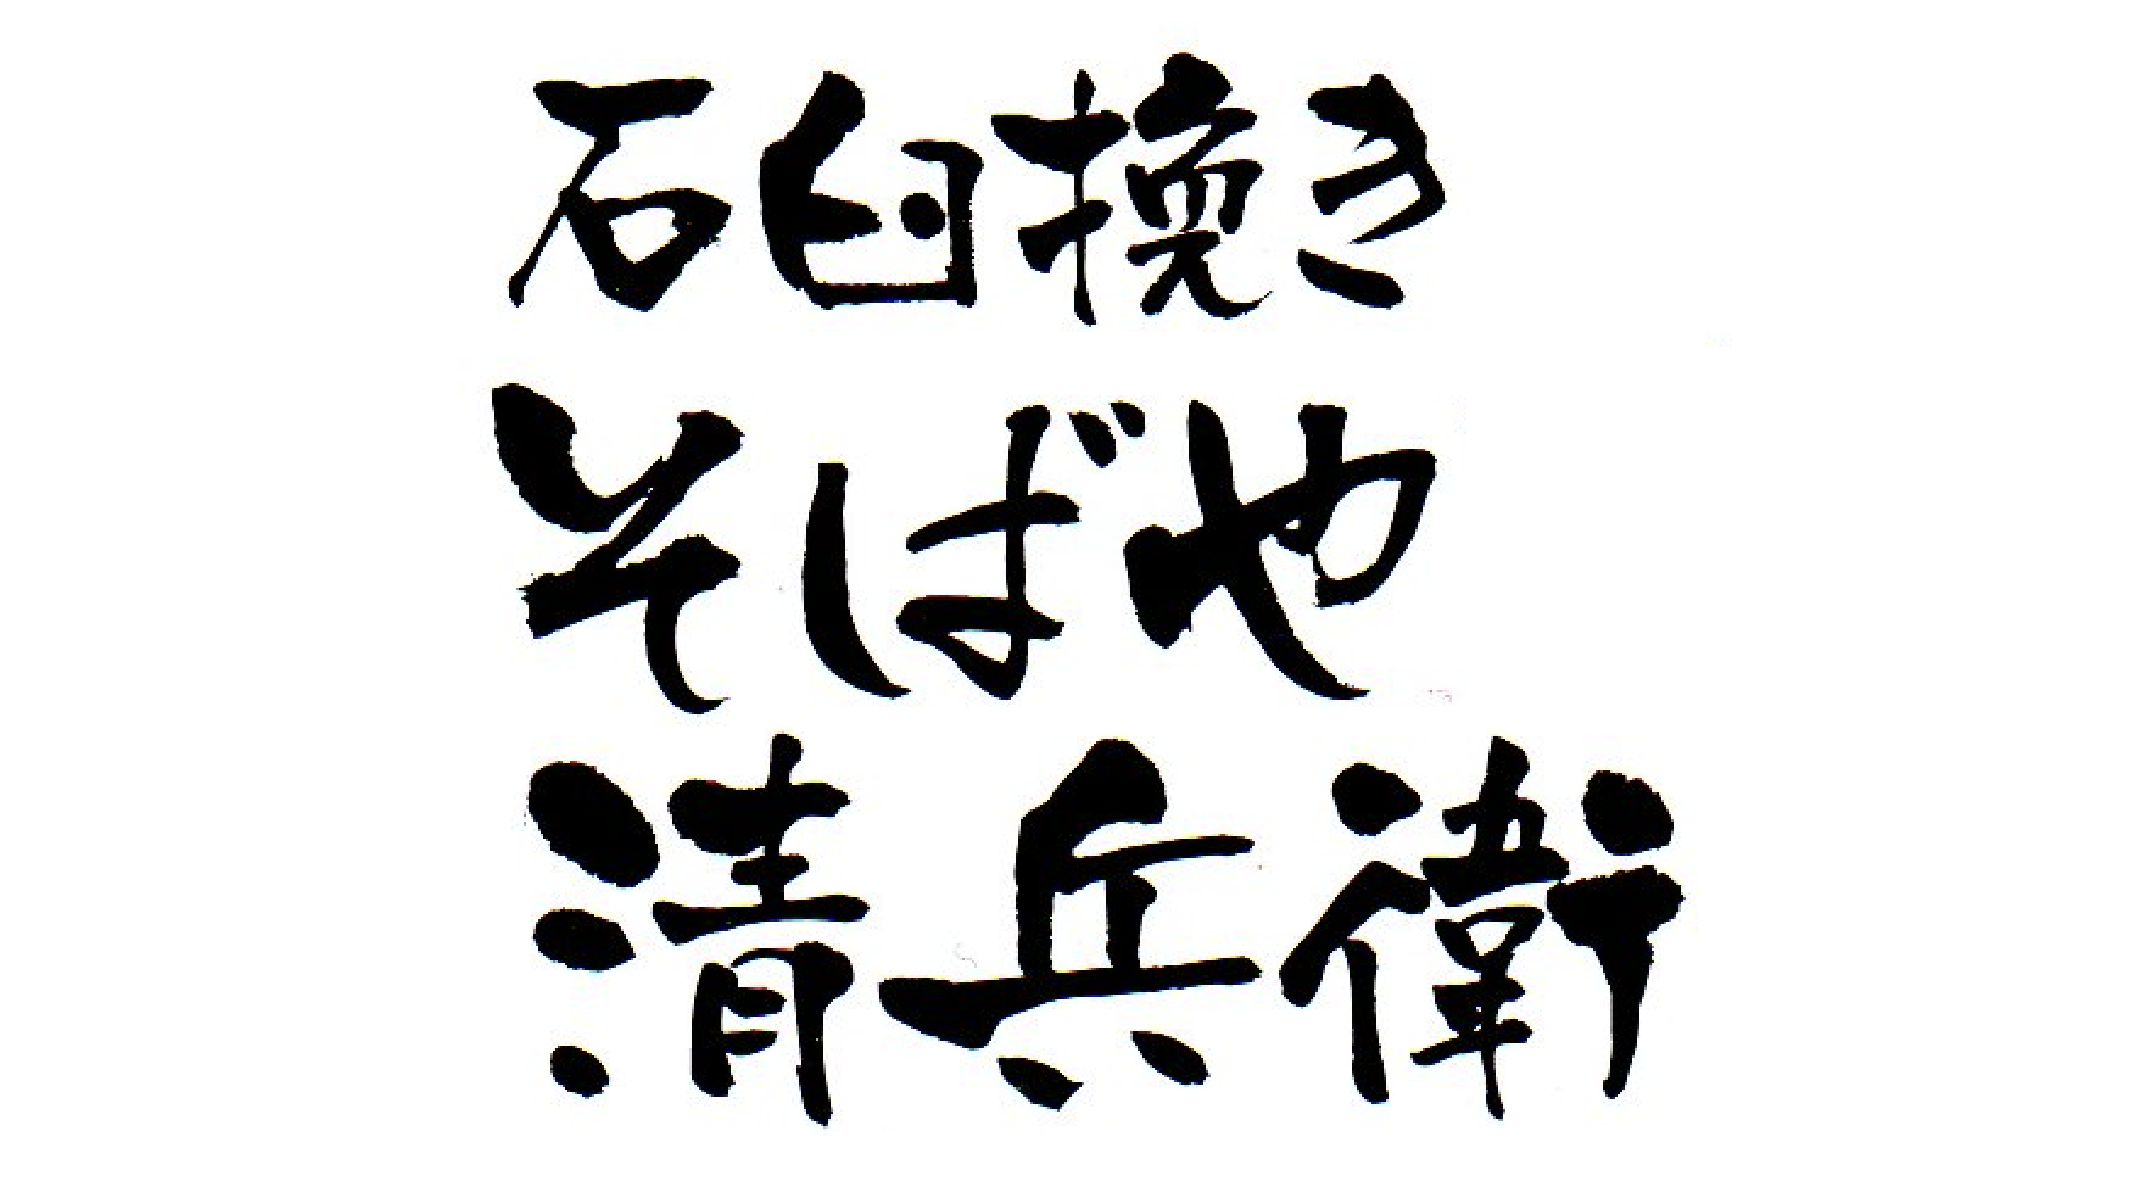 石臼挽き
そばや
清兵衛